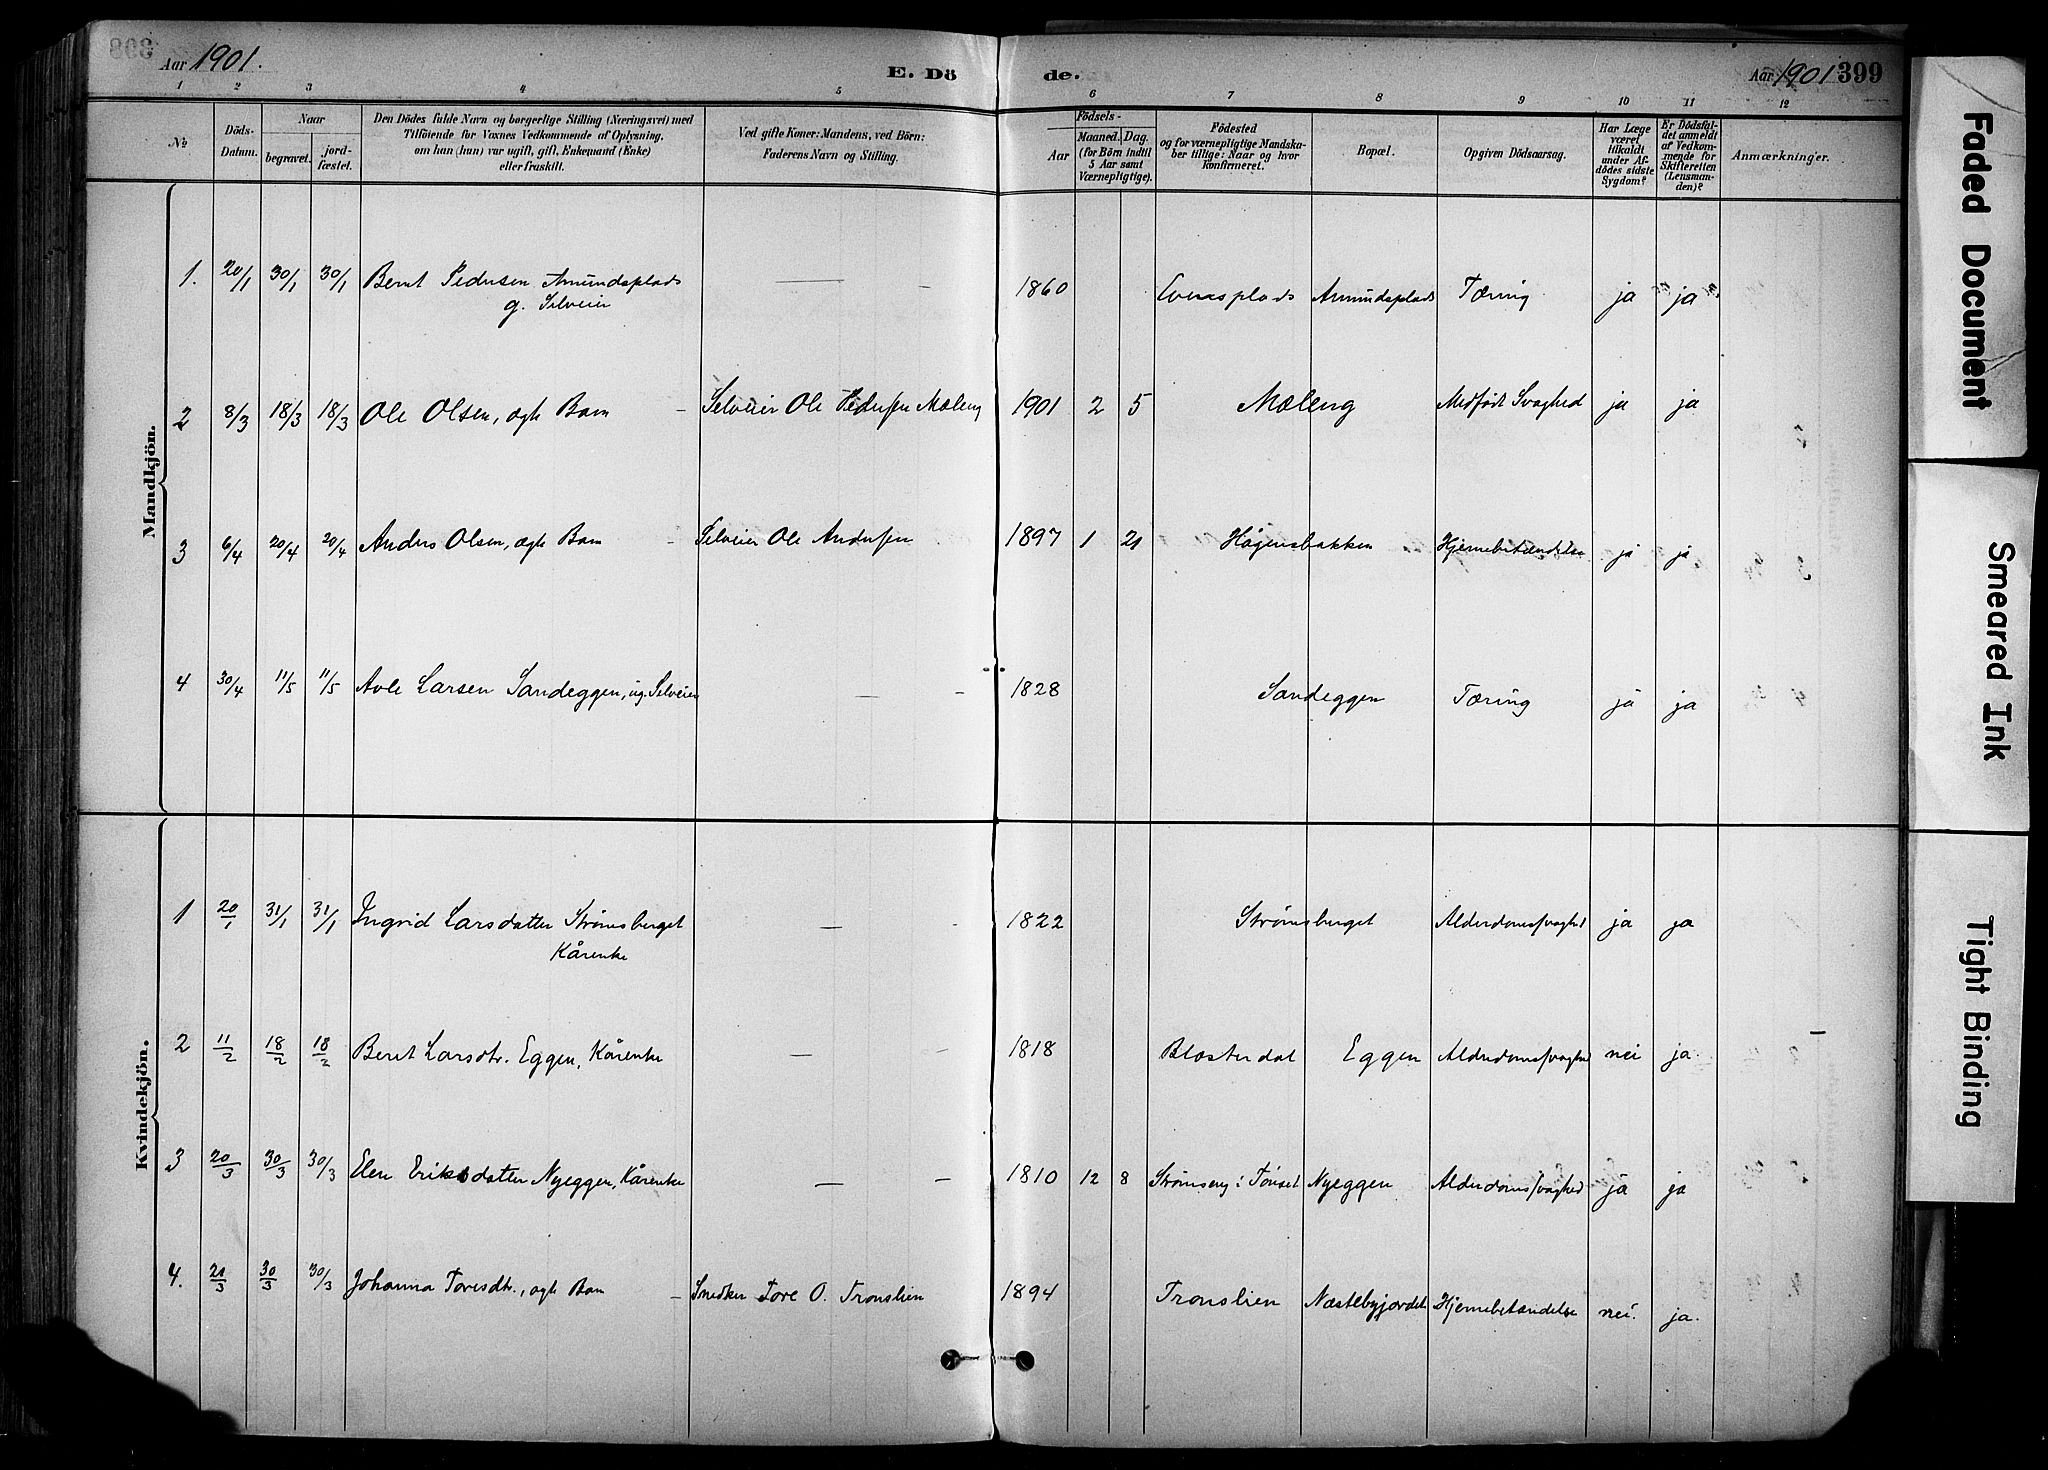 Aar 1901.
E. Dö
de.
Aar 1901 399
1 2 3 4 5 6 7 8 9 10 11 12
№
Döds-Datum.
Naar
begravet.
jord-fæstet.
Den Dödes fulde Navn og borgerlige Stilling (Næringsvei) med
Tilföiende for Voxnes Vedkommende af Oplysning,
om han (hun) var ugift, gift, Enkemand (Enke)
eller fraskilt.
Ved gifte Koner: Mandens, ved Börn:
Faderens Navn og Stilling.
Födsels-
Aar
Maaned. Dag.
(for Börn indtil
5 Aar samt
Værnepligtige).
Födested
og for værnepligtige Mandska-
ber tillige: Naar og hvor
konfirmeret.
Bopæl.
Opgiven Dödsaarsag.
Har Læge
været
tilkaldt
under Af-
dödes sidste
Sygdom?
Er Dödsfal-
det anmeldt
af Vedkom-
mende for
Skifteretten
(Lensman-
den)?
Anmærkninger.
Mandkjön.
1. 20/1 30/1 30/1 Bernt Pedersen Amundsplads — 1860 Evensplads Amundsplads Tæring ja ja
g. Selveier
2 8/3 18/3 18/3 Ole Olsen, ægte Barn - Selveier Ole Pedersen Mæleng 1901 2 5 Mæleng Medfødt Svaghed ja ja
3 6/4 20/4 20/4 Anders Olsen, ægte Barn - Selveier Ole Andersen 1897 1 21 Hågensbakken Hjernebetændelse ja ja
4 30/4 11/5 11/5 Larsen Sandeggen, ug. Selveier — 1828 Sandeggen Tæring ja ja
Kvindekjön.
1 20/1 31/1 31/1 Ingrid Larsdatter Strømsberget — 1822 Strømsberget Alderdomssvaghed ja ja
Kårenke
2 11/2 18/2 18/2 Berit Larsdtr. Eggen, Kårenke — 1818 Blæsterdal Eggen Alderdomssvaghed nei ja
3 20/3 30/3 30/3 Elen Eriksdatter Nyeggen, Kårenke — 1810 12 8 Strømseng i Tønset Nyeggen Alderdomssvaghed ja ja
4. 21/3 30/3 30/3 Johanna Toresdtr., ægte Barn - Snedker Tore O. Tronslien 1894 Tronslien Næstebyjordet Hjernebetændelse nei. ja.
Faded Document
Smeared Ink
Tight Binding